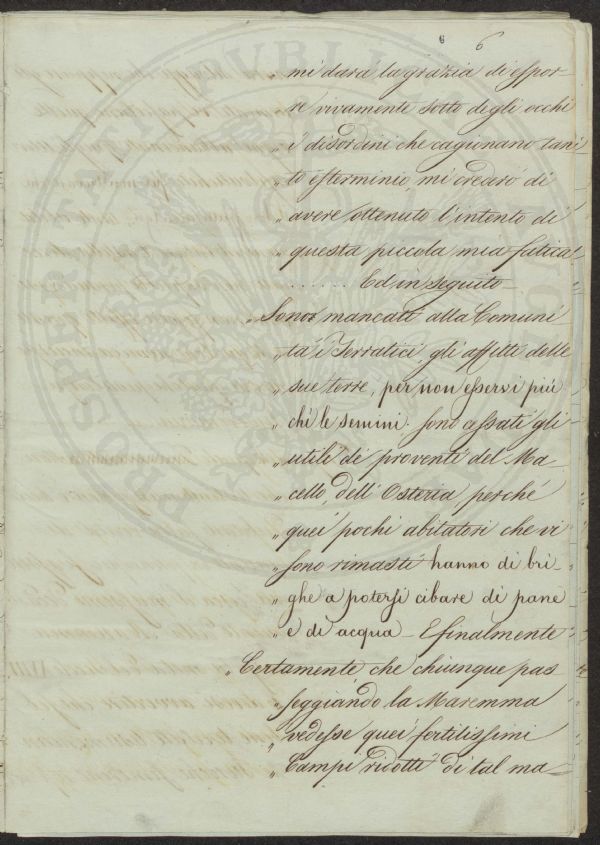 6 6
„ mi dara la grazia di espor-
„ re vivamente sotto degli occhi
„ i disordini che cagionano tan
„ to esterminio, mi crederò di
„ avere ottenuto l'intento di
„ questa piccola mia fatica
...... Ed in seguito-
„ Sonor mancati alla Comuni
„ tà i Terratici, gli affitti delle
„ sue terre, per non esservi più
„ chi le semini. sono assati gli
„ utili di proventi del Ma-
„ cello, dell'Osteria, perché
„ quei pochi abitatori che vi
„ sono rimasti hanno di bri-
„ ghe a potersi cibare di pane
„ e di acqua - E finalmente
„ Certamente che chiunque pas
„ seggiando la Maremma
„ vedesse quei fertilissimi
„ Campi ridotti di tal ma-
PROSPERITATI PUBLICAE